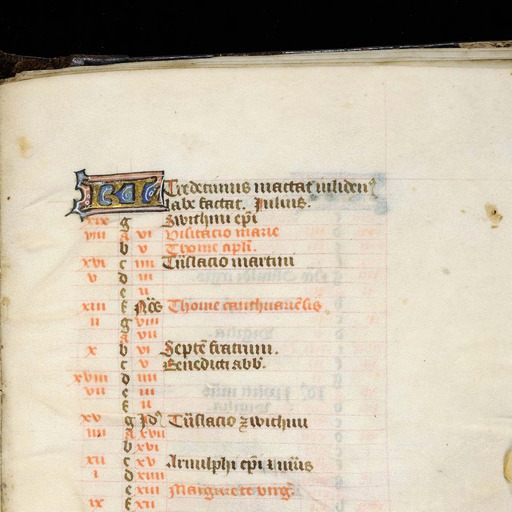 KL Tredecimus mactat iuliden9
labe factat. Julius.
xix g Zwithini epi
viii A vi Visitacio marie
b v Thome apli.
xvi c iiii Tnslacio martini
v d iii
e ii
xiii f Nōs Thome canthuariēsis
ii g viii
A vii
x b vi Septē fratrum.
c v Benedicti abb.
xviii d iiii
vii e iii
f ii
xv g Jds Tnslacio zwithini
iiii A xvii
b xvi
xii c xv Arnulphi epi
i d xiiii
e xiii Margarete virg.
ix f xii